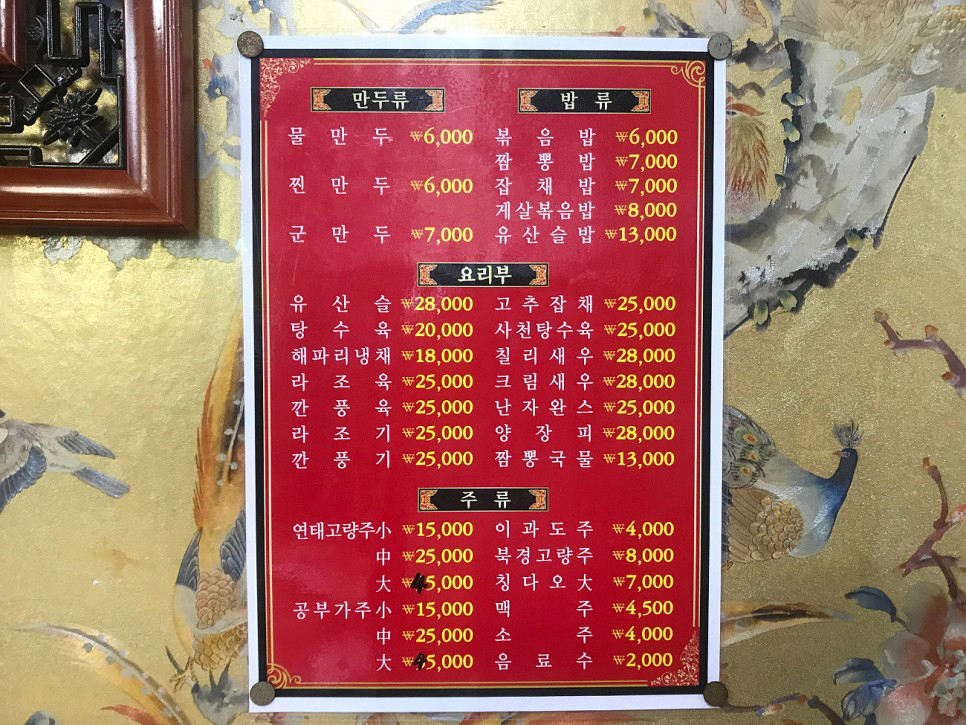 만두류
물만두 ₩6,000
찐만두 ₩6,000
군만두 ₩7,000
밥류
볶음밥 ₩6,000
짬뽕밥 ₩7,000
잡채밥 ₩7,000
게살볶음밥 ₩8,000
유산슬밥 ₩13,000
요리부
유산슬 ₩28,000
탕수육 ₩20,000
해파리냉채 ₩18,000
라조육 ₩25,000
깐풍육 ₩25,000
라조기 ₩25,000
깐풍기 ₩25,000
고추잡채 ₩25,000
사천탕수육 ₩25,000
칠리새우 ₩28,000
크림새우 ₩28,000
난자완스 ₩25,000
양장피 ₩28,000
짬뽕국물 ₩13,000
주류
연태고량주小 ₩15,000
中 ₩25,000
大 ₩45,000
공부가주小 ₩15,000
中 ₩25,000
大 ₩45,000
이과도주 ₩4,000
북경고량주 ₩8,000
칭다오大 ₩7,000
맥주 ₩4,500
소주 ₩4,000
음료수 ₩2,000